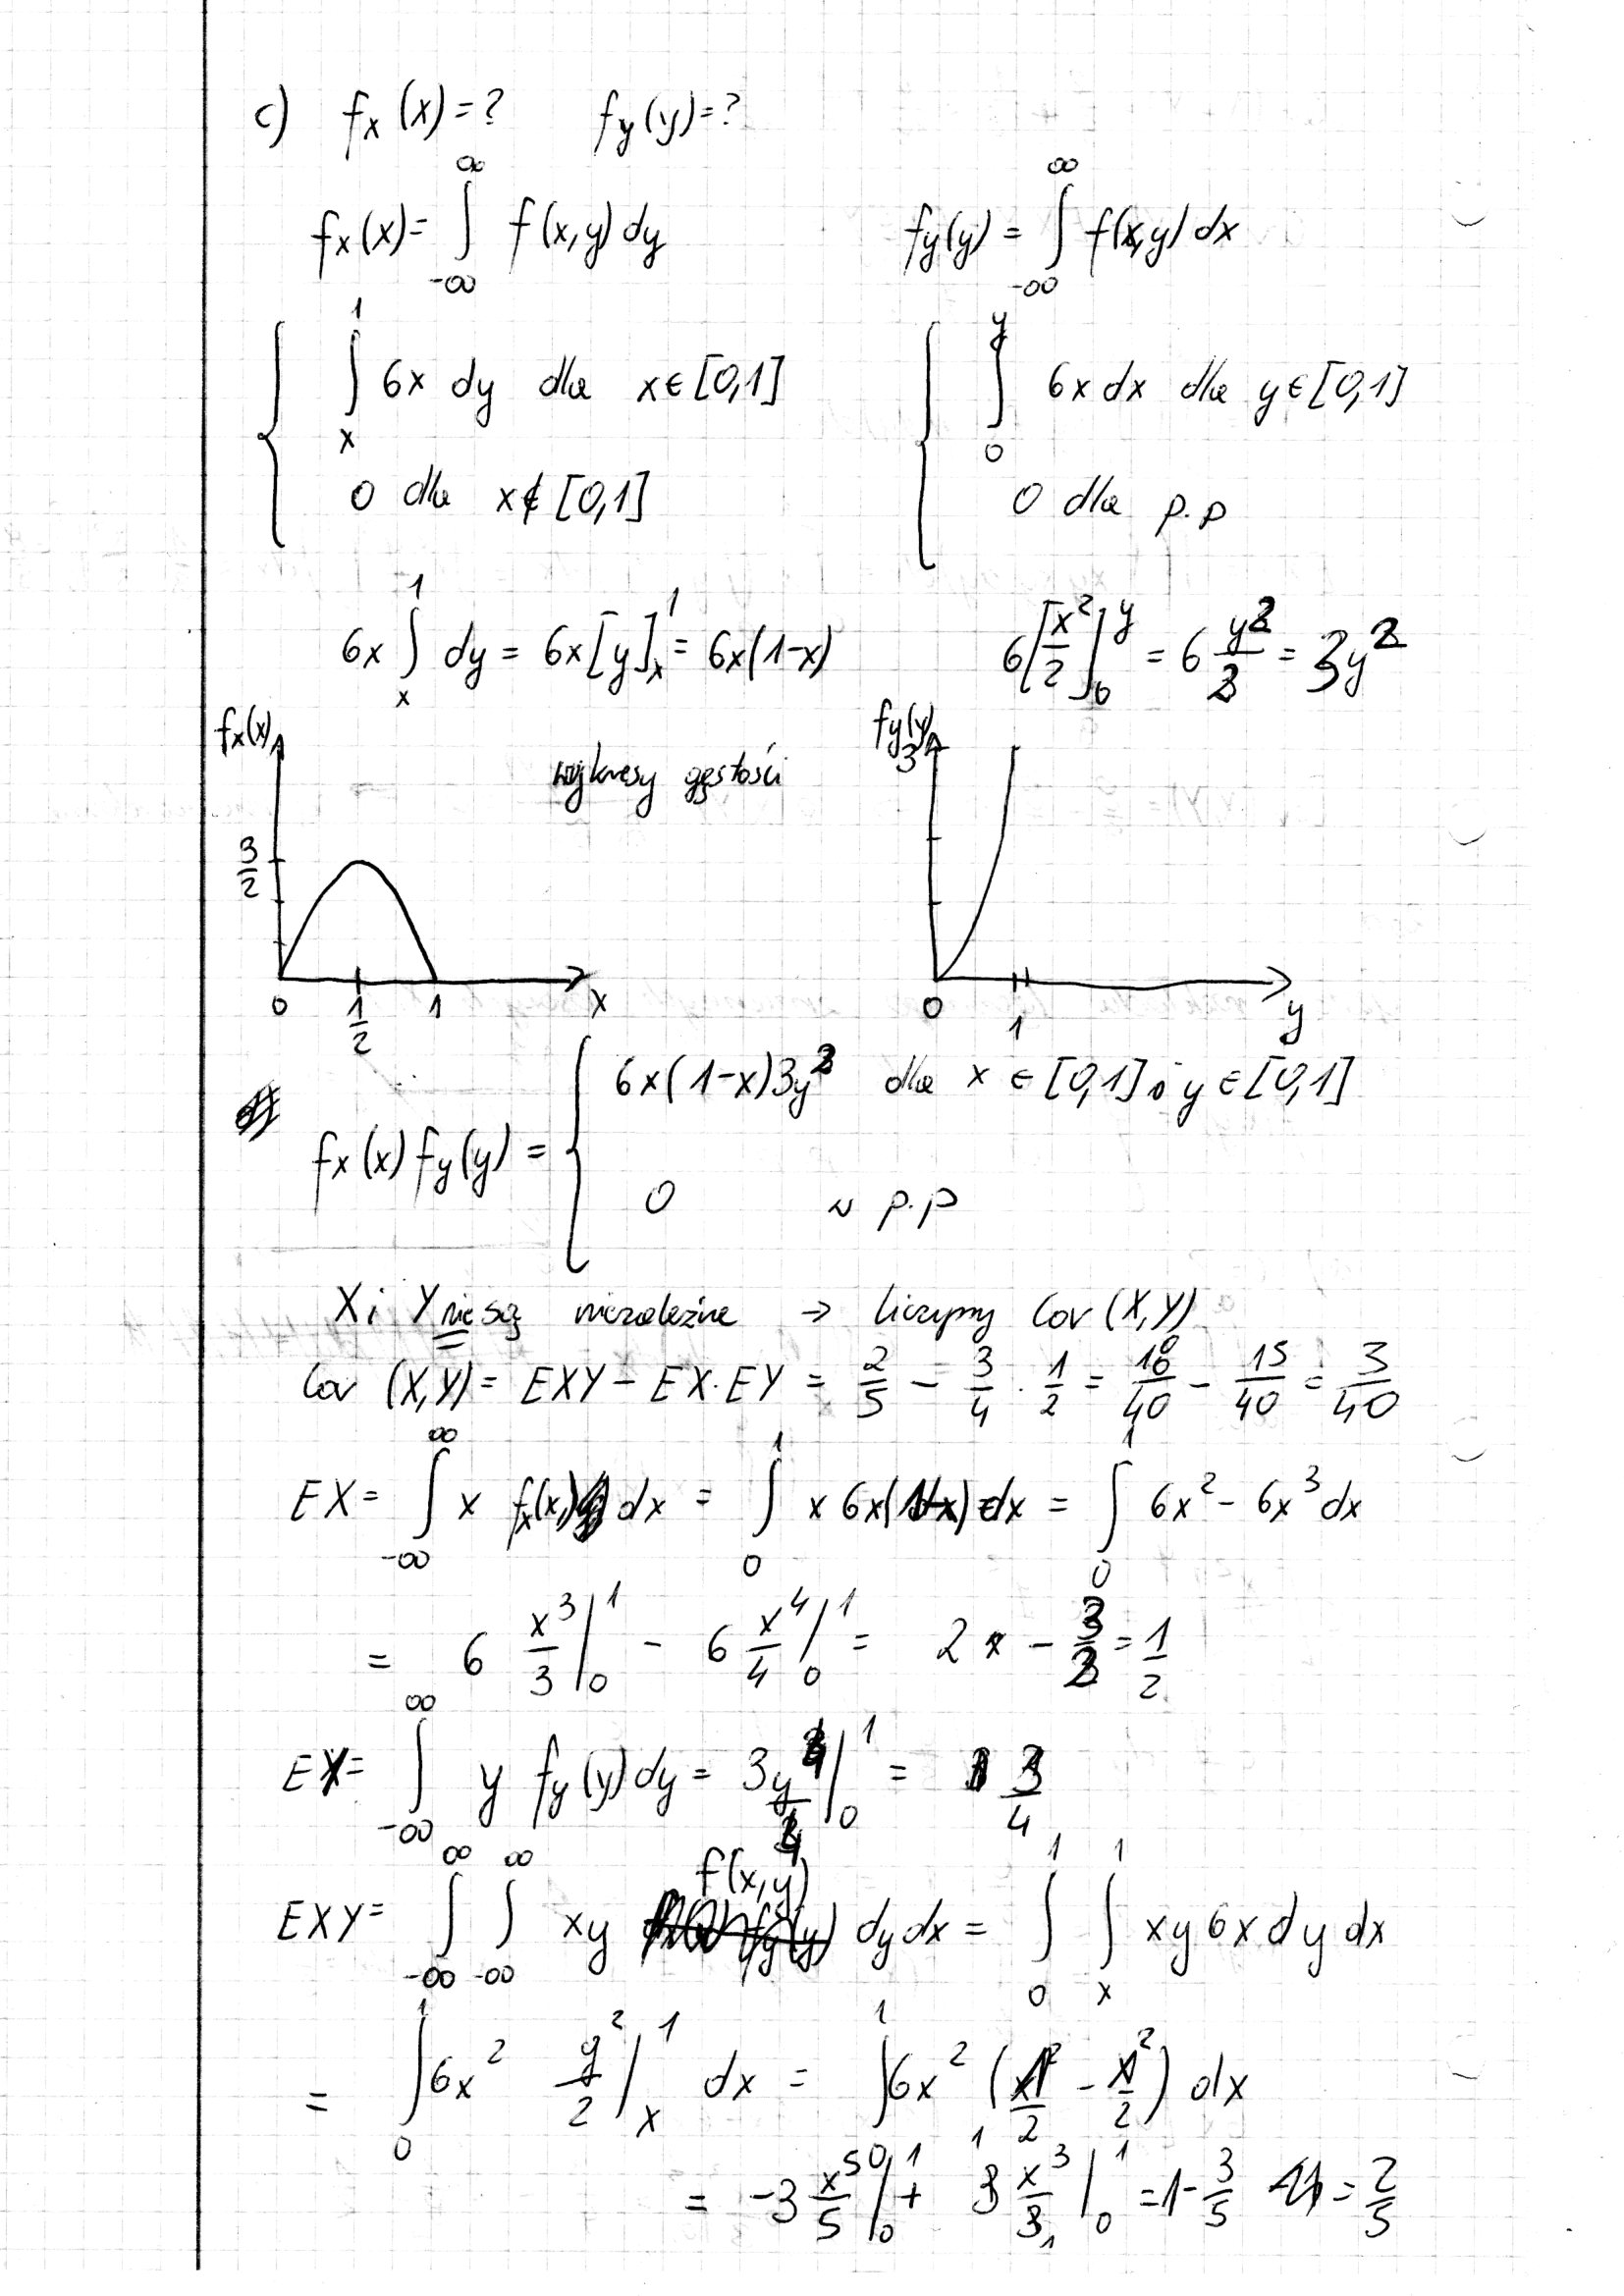 c) fx(x)=? fy(y)=?
fx(x)= ∫_{-∞}^{∞} f(x,y)dy fy(y) = ∫_{-∞}^{∞} f(x,y)dx
{ ∫_{x}^{1} 6x dy dla x∈[0,1] { ∫_{0}^{y} 6x dx dla y∈[0,1]
0 dla x∉[0,1] 0 dla p.p
6x ∫_{x}^{1} dy = 6x[y]_{x}^{1} = 6x(1-x) 6[x²/2]_{0}^{y} = 6 y²/2 = 3y²
fx(x) wykresy gęstości fy(y)
3
3/2
0 1/2 1 x 0 1 y
fx(x) fy(y) = { 6x(1-x)3y² dla x ∈ [0,1] i y ∈ [0,1]
0 w p.p
X i Y nie są niezależne → liczymy Cov (X,Y)
Cov (X,Y) = EXY - EX·EY = 2/5 - 3/4 · 1/2 = 16/40 - 15/40 = 3/40
EX = ∫_{-∞}^{∞} x fx(x) dx = ∫_{0}^{1} x 6x(1-x) dx = ∫_{0}^{1} 6x² - 6x³ dx
= 6 x³/3 |_{0}^{1} - 6 x⁴/4 |_{0}^{1} = 2 - 3/2 = 1/2
EY = ∫_{-∞}^{∞} y fy(y)dy = 3y⁴/4 |_{0}^{1} = 3/4
EXY = ∫_{-∞}^{∞} ∫_{-∞}^{∞} xy f(x,y) dydx = ∫_{0}^{1} ∫_{x}^{1} xy6xdydx
= ∫_{0}^{1} 6x² y²/2 |_{x}^{1} dx = ∫_{0}^{1} 6x² (1²/2 - x²/2) dx
= -3 x⁵/5 |_{0}^{1} + 3 x³/3 |_{0}^{1} = 1 - 3/5 = 2/5